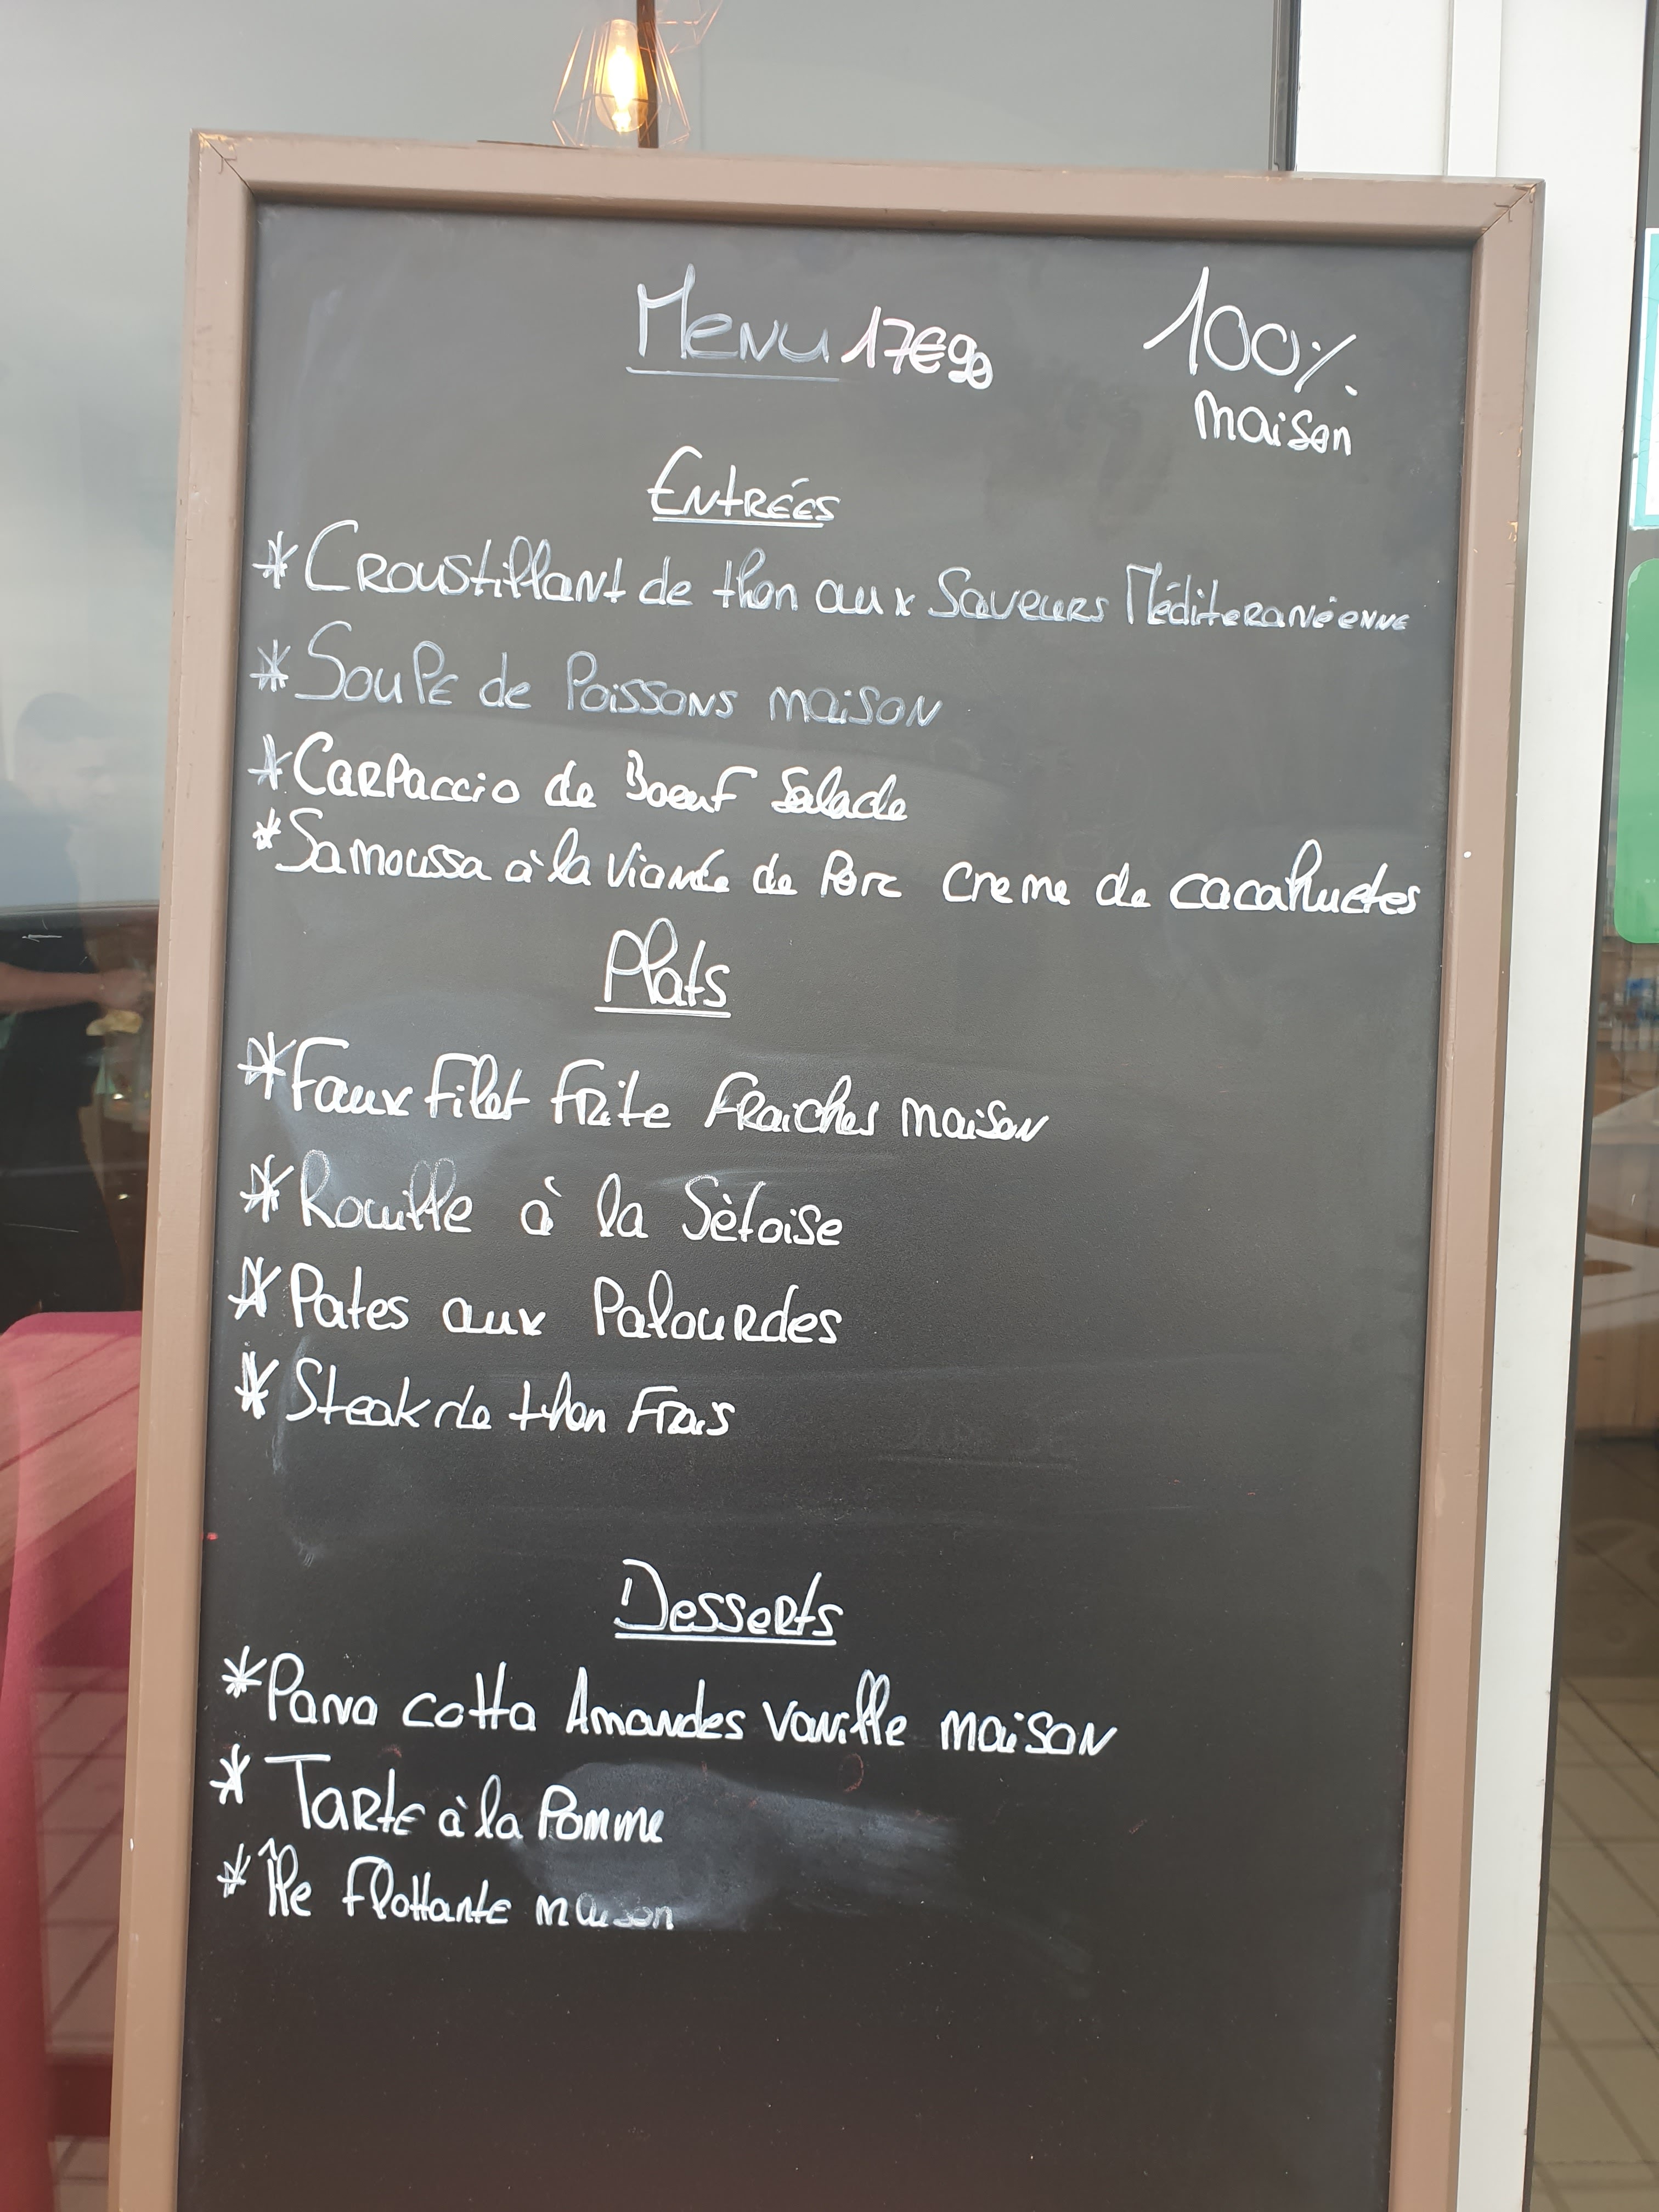 Menu 17€90
100%
maison
Entrées
* Croustillant de thon aux Saveurs Méditeranéenne
* Soupe de Poissons maison
* Carpaccio de Boeuf Salade
* Samoussa à la Viande de Porc Creme de cacahuetes
Plats
* Faux Filet Frite Fraiches maison
* Rouille à la Sètoise
* Pates aux Palourdes
* Steak de thon Frais
Desserts
* Pana cotta Amandes vanille maison
* Tarte à la Pomme
* Île flottante maison